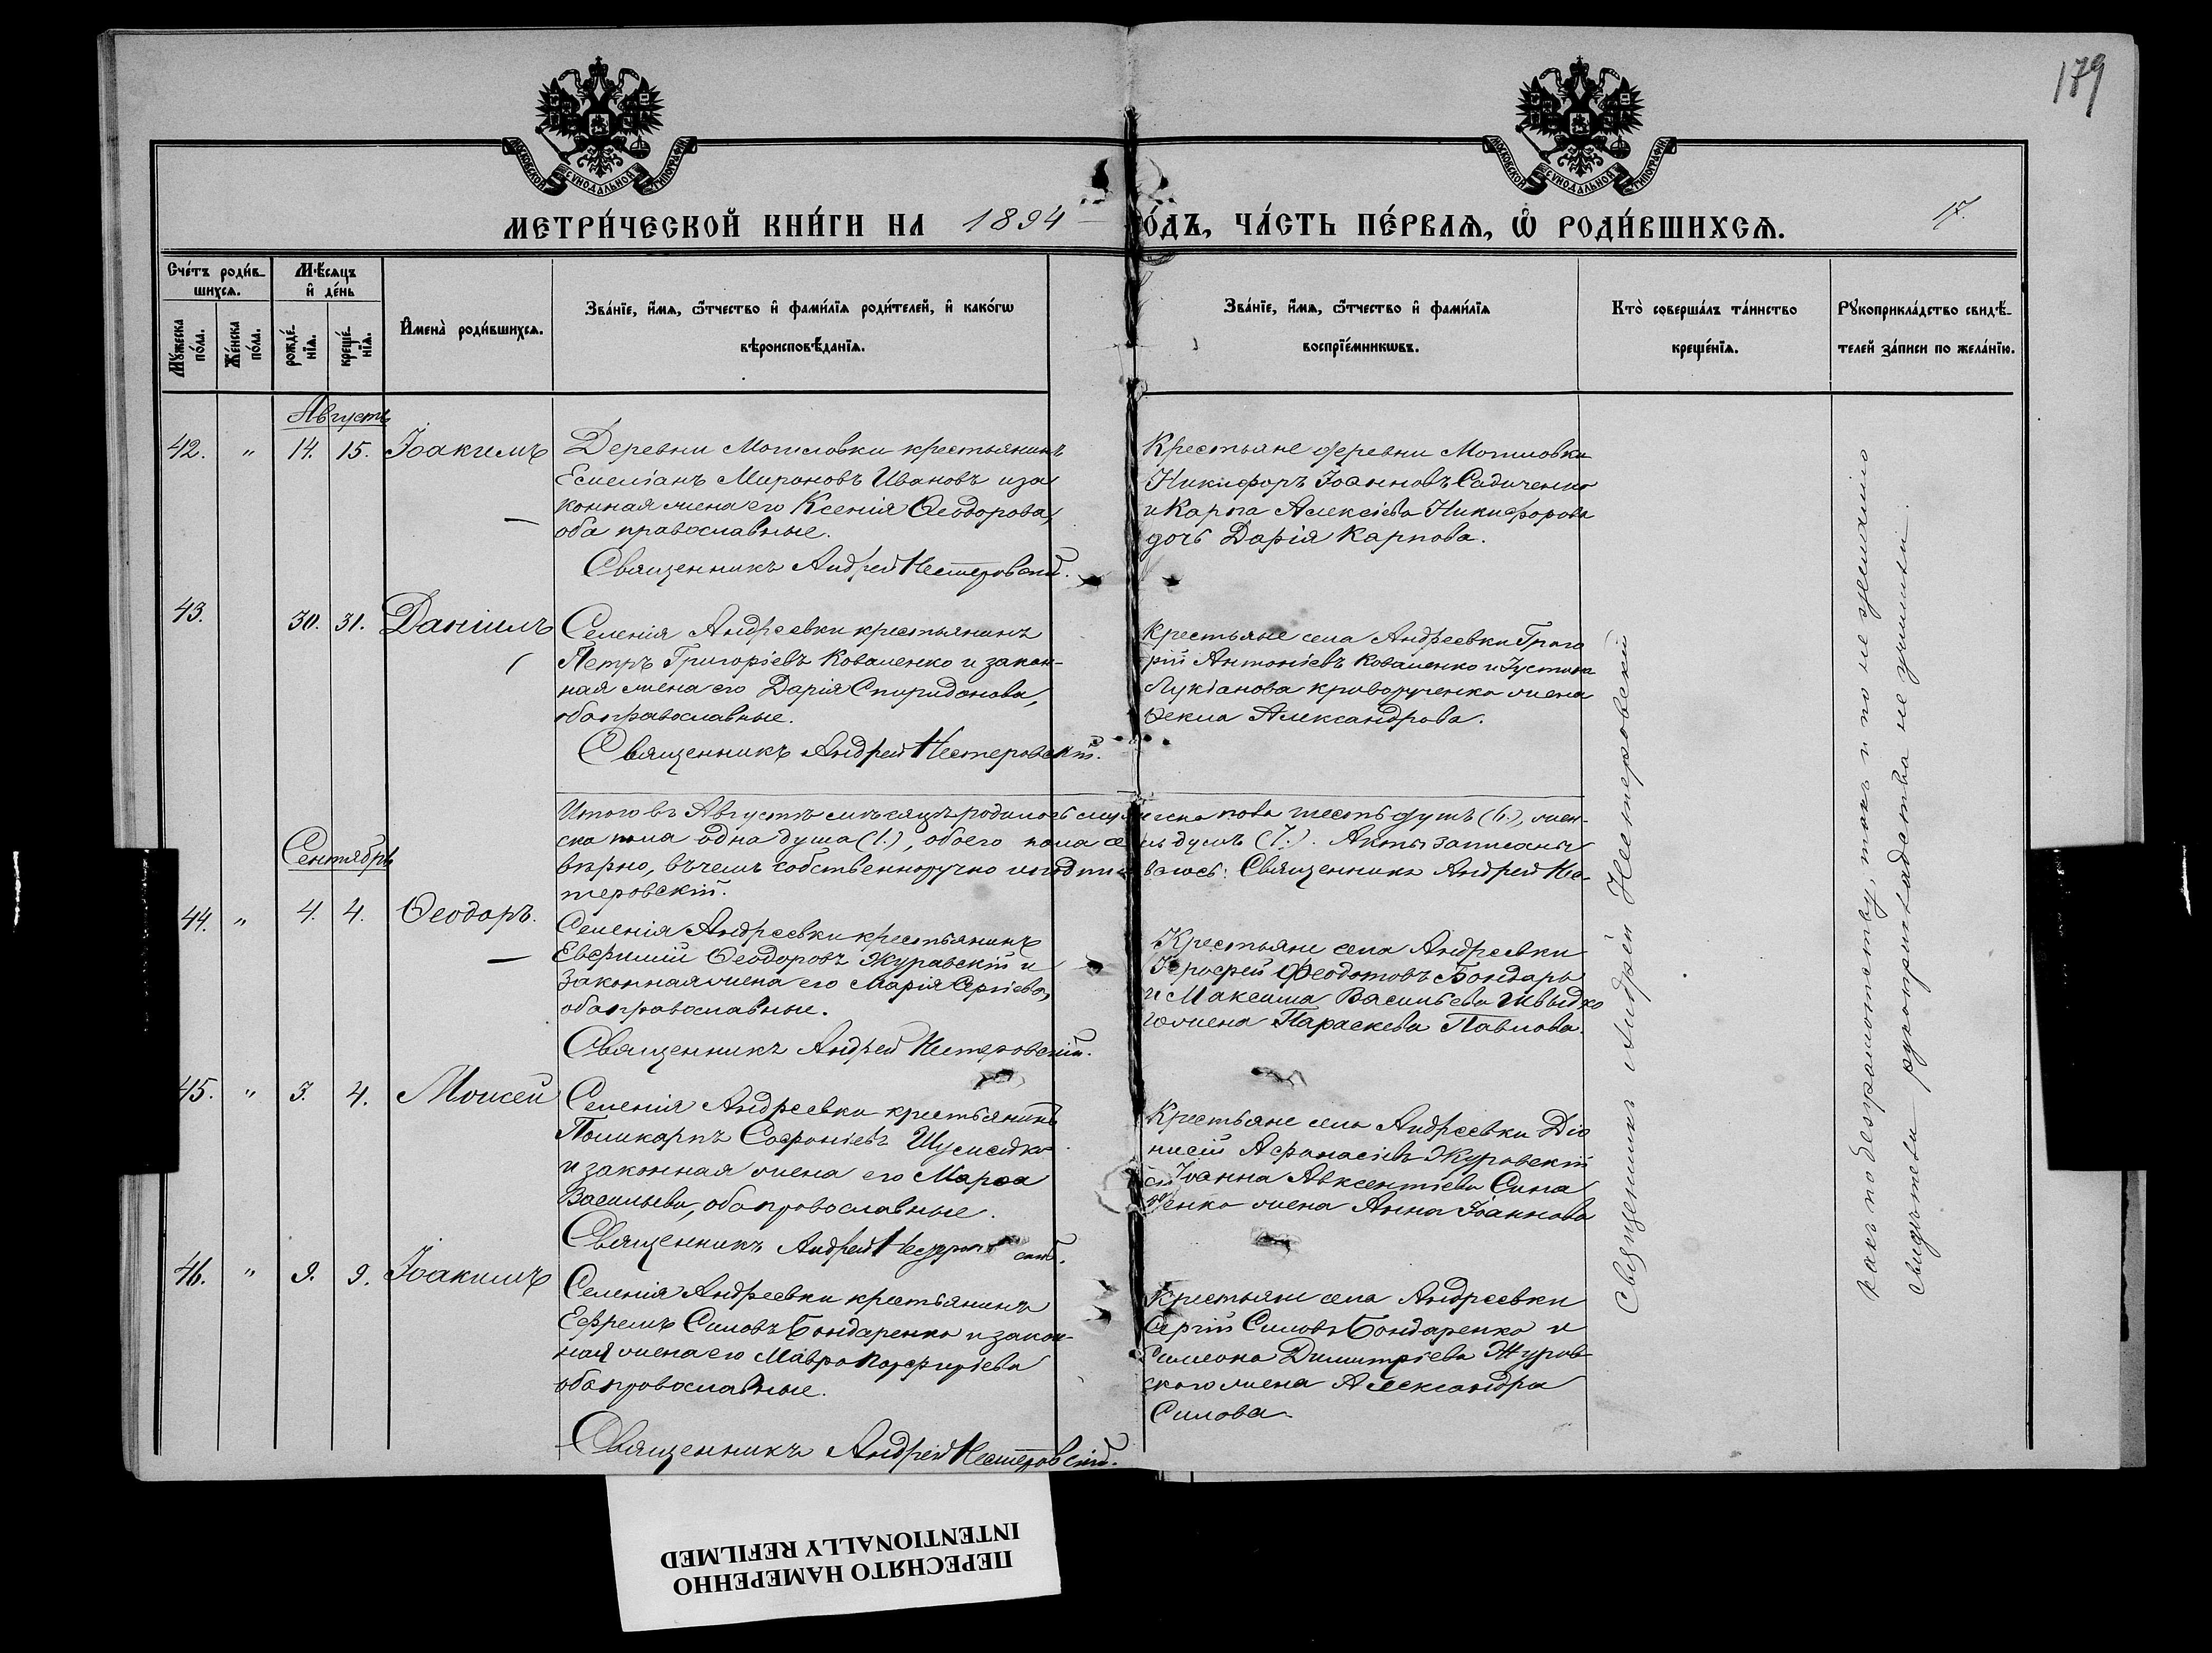 179
МОСКОВСКОЙ СѴНОДАЛЬНОЙ ТИПОГРАФІИ
МОСКОВСКОЙ СѴНОДАЛЬНОЙ ТИПОГРАФІИ
МЕТРИ́ЧЕСКОЙ КНИ́ГИ НА 1894 О́ДЪ, ЧА́СТЬ ПЕ́РВАѦ, Ѡ҆ РОДИ́ВШИХСѦ.
17.
Сче́тъ роди́в-
шихсѧ.
Мѣ́сѧцъ
и҆ де́нь
Мꙋ́жеска
по́ла.
Же́нска
по́ла.
рожде́-
нїѧ.
креще́-
нїѧ.
И҆мена̀ роди́вшихсѧ.
Зва́нїе, и҆́мѧ, ѻ҆́тчество и҆ фами́лїѧ роди́телей, и҆ како́гѡ
вѣроисповѣ́данїѧ.
Зва́нїе, и҆́мѧ, ѻ҆́тчество и҆ фами́лїѧ
воспрїе́мникѡвъ.
Кто̀ соверша́лъ та́инство
креще́нїѧ.
Рꙋкоприкла́дство свидѣ́-
телей за́писи по жела́нїю.
Августъ
42. " 14. 15. Іоакимъ
Деревни Мотиловки крестьянинъ
Емеліанъ Мироновъ Ивановъ и за
конная жена его Ксенія Ѳеодорова,
оба православные.
Священникъ Андрей Нестеровскій.
Крестьяне деревни Мотиловки
Никифоръ Іоанновъ Садиченко
и Карпа Алексіева Никифорова
дочь Дарія Карпова.
43. 30. 31. Даніилъ
Селенія Андреевки крестьянинъ
Петръ Григоріевъ Коваленко и закон-
ная жена его Дарія Спиридонова,
оба православные.
Священникъ Андрей Нестеровскій.
Крестьяне села Андреевки Григо
рій Антоніевъ Коваленко и Іустина
Лукіанова Криворученка жена
Ѳекла Александрова.
Итого въ Августѣ мѣсяцѣ родилось мужеска пола шесть душъ (6.), жен-
ска пола одна душа (1.), обоего пола семь душъ (7.). Акты записаны
вѣрно, въ чемъ собственноручно и подписываюсь: Священникъ Андрей Не-
теровскій.
Сентябрь
44. " 4. 4. Ѳеодоръ.
Селенія Андреевки крестьянинъ
Евфимій Ѳеодоровъ Журавскій и
законная жена его Марія Сергіева,
оба православные.
Священникъ Андрей Нестеровскій.
Крестьяне села Андреевки
Іероѳей Феодотовъ Бондарь
и Максима Васильева Швыдко
го жена Параскева Павлова.
45. " 3. 4. Моисей
Селенія Андреевки крестьянинъ
Поликарпъ Софроніевъ
и законная жена его Марѳа
Васильева, оба православные.
Священникъ Андрей
Крестьяне села Андреевки Діо
нисій Афанасіевъ Журовскій
Іоанна Авксентіева Сина
ченко жена Анна Іоаннова
46. " 9. 9. Іоакимъ
Селенія Андреевки крестьянинъ
Ефремъ Силовъ Бондаренко и закон-
ная жена его Мавра Порфиріева
оба православные.
Священникъ Андрей Нестеровскій.
Крестьяне села Андреевки
Сергій Силовъ Бондаренко и
Симеона Димитріева Журов
скаго жена Александра
Силова
Священникъ Андрей Нестеровскій
какъ по безграмотству, такъ и по не желанію
свидѣтели рукоприкладства не учинили.
ПЕРЕСНЯТО НАМЕРЕННО
INTENTIONALLY REFILMED